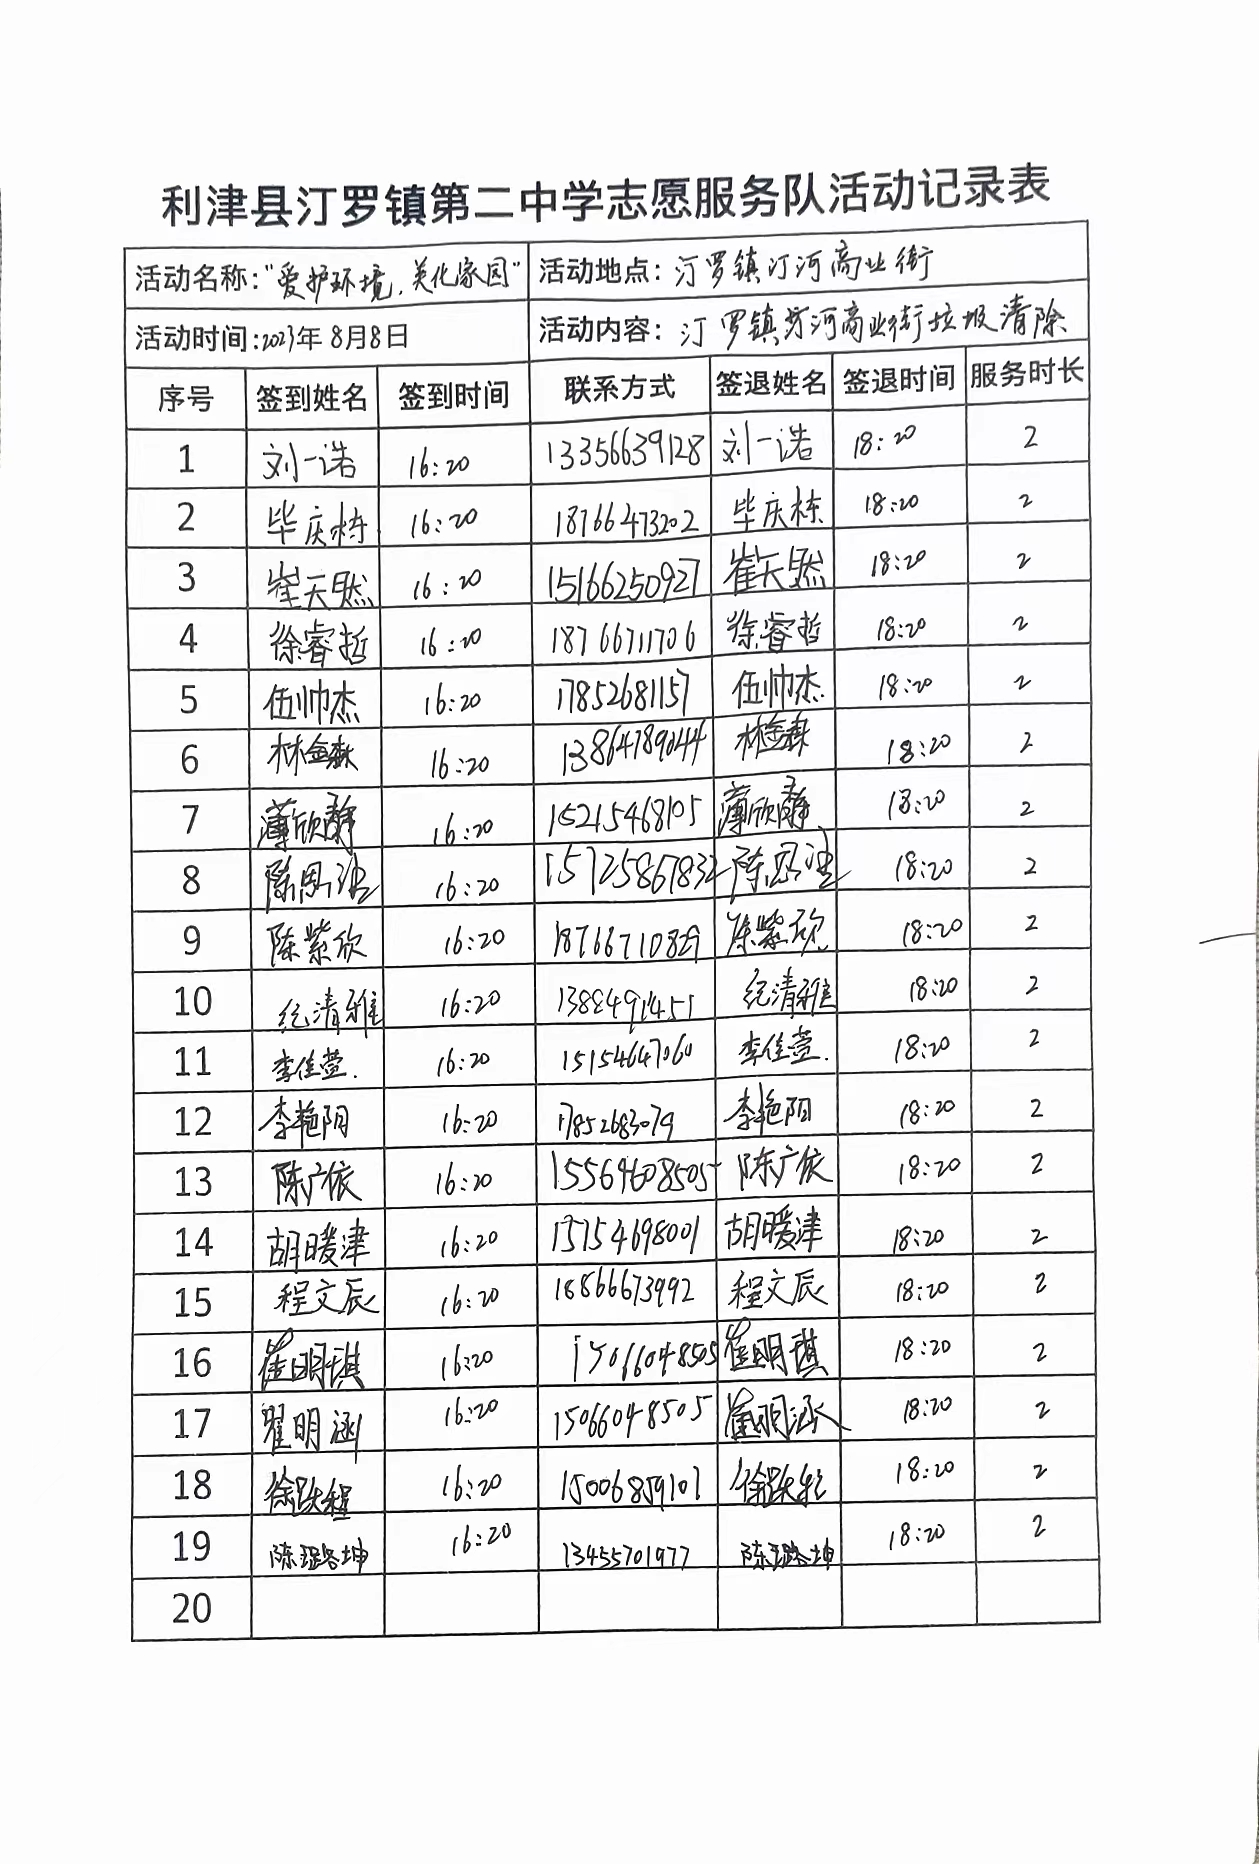 利津县汀罗镇第二中学志愿服务队活动记录表
活动名称:"爱护环境,美化家园" 活动地点: 汀罗镇汀河商业街
活动时间:2023年8月8日 活动内容: 汀罗镇汀河商业街垃圾清除
序号 签到姓名 签到时间 联系方式 签退姓名 签退时间 服务时长
1 刘一诰 16:20 13356639128 刘一诰 18:20 2
2 毕庆栋 16:20 18766473202 毕庆栋 18:20 2
3 崔天然 16:20 15166250927 崔天然 18:20 2
4 徐睿哲 16:20 18766711706 徐睿哲 18:20 2
5 伍帅杰 16:20 17852681157 伍帅杰 18:20 2
6 林鑫森 16:20 13864789044 林鑫森 18:20 2
7 薄欣静 16:20 15215468105 薄欣静 18:20 2
8 陈思 16:20 15725867832 陈思 18:20 2
9 陈紫欣 16:20 18766710829 陈紫欣 18:20 2
10 纪清雅 16:20 纪清雅 18:20 2
11 李佳萱. 16:20 15154647060 李佳萱. 18:20 2
12 李艳阳 16:20 17852683079 李艳阳 18:20 2
13 陈广依 16:20 15564608505 陈广依 18:20 2
14 胡暖津 16:20 15154698001 胡暖津 18:20 2
15 程文辰 16:20 18866673992 程文辰 18:20 2
16 崔明琪 16:20 15066048505 崔明琪 18:20 2
17 明涵 16:20 15066048505 崔明涵 18:20 2
18 徐跃程 16:20 15006859101 徐跃程 18:20 2
19 陈璐坤 16:20 13455701977 陈璐坤 18:20 2
20